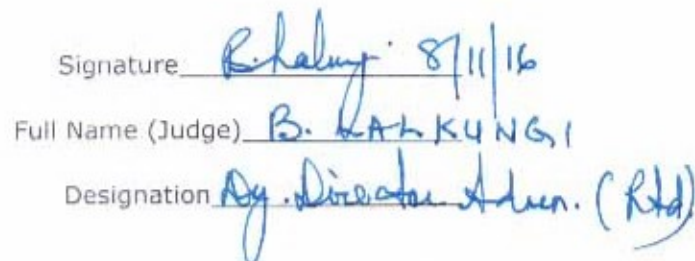 Signature 8/11/16
Full Name (Judge) B. LALKUNGI
Designation Dy. Director Admn. (Rtd)